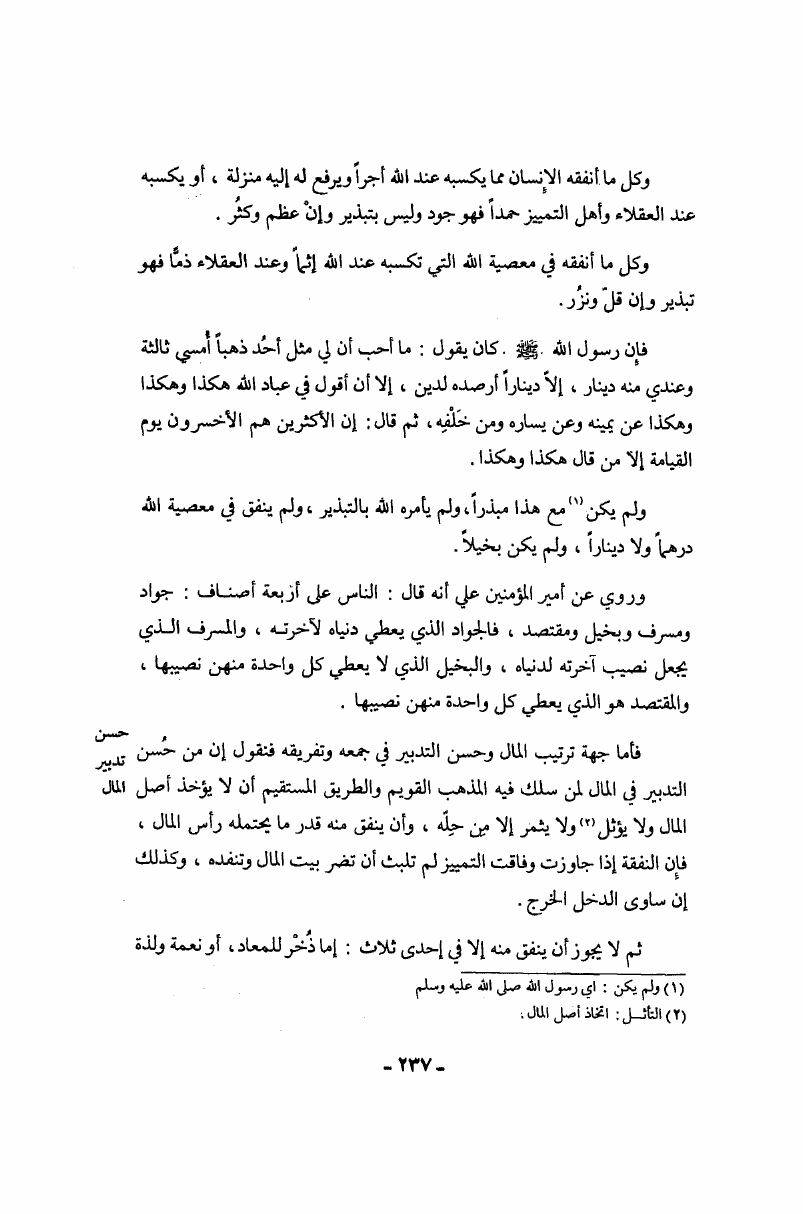 وكل ما أنفقه الإنسان مما يكسبه عند الله أجراً ويرفع له إليه منزلة ، أو يكسبه
عند العقلاء وأهل التمييز حمداً فهو جود وليس بتبذير وإنْ عظم وكثُر .
وكل ما أنفقه في معصية الله التي تكسبه عند الله إثماً وعند العقلاء ذمًّا فهو
تبذير وإن قلّ ونزُر .
فإن رسول الله ﷺ . كان يقول : ما أحب أن لي مثل أحُد ذهباً أُمسي ثالثة
وعندي منه دينار ، إلاّ ديناراً أرصده لدين ، إلا أن أقول في عباد الله هكذا وهكذا
وهكذا عن يمينه وعن يساره ومن خَلْفِه ، ثم قال : إن الأكثرين هم الأخسرون يوم
القيامة إلا من قال هكذا وهكذا .
ولم يكن (١) مع هذا مبذراً ، ولم يأمره الله بالتبذير ، ولم ينفق في معصية الله
درهماً ولا ديناراً ، ولم يكن بخيلاً .
وروي عن أمير المؤمنين علي أنه قال : الناس على أربعة أصناف : جواد
ومسرف وبخيل ومقتصد ، فالجواد الذي يعطي دنياه لآخرته ، والمسرف الذي
يجعل نصيب آخرته لدنياه ، والبخيل الذي لا يعطي كل واحدة منهن نصيبها ،
والمقتصد هو الذي يعطي كل واحدة منهن نصيبها .
حسن
تدبير
المال
فأما جهة ترتيب المال وحسن التدبير في جمعه وتفريقه فنقول إن من حُسن
التدبير في المال لمن سلك فيه المذهب القويم والطريق المستقيم أن لا يؤخذ أصل
المال ولا يؤثل (٢) ولا يثمر إلا مِن حِلّه ، وأن ينفق منه قدر ما يحتمله رأس المال ،
فإن النفقة إذا جاوزت وفاقت التمييز لم تلبث أن تضر ببيت المال وتنفده ، وكذلك
إن ساوى الدخل الخرج .
ثم لا يجوز أن ينفق منه إلا في إحدى ثلاث : إما ذُخْر للمعاد ، أو نعمة ولذة
(١) ولم يكن : اي رسول الله صلى الله عليه وسلم
(٢) التأثـل : اتخاذ أصل المال .
- ٢٣٧ -